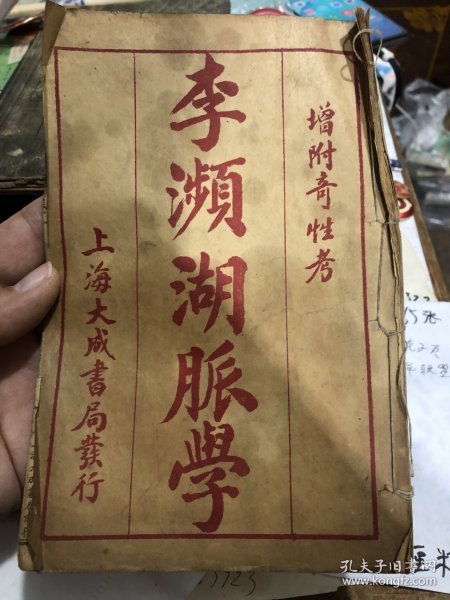 增附奇性考
李瀕湖脈學
上海大成書局發行
孔夫子旧书网
www.kongfz.com